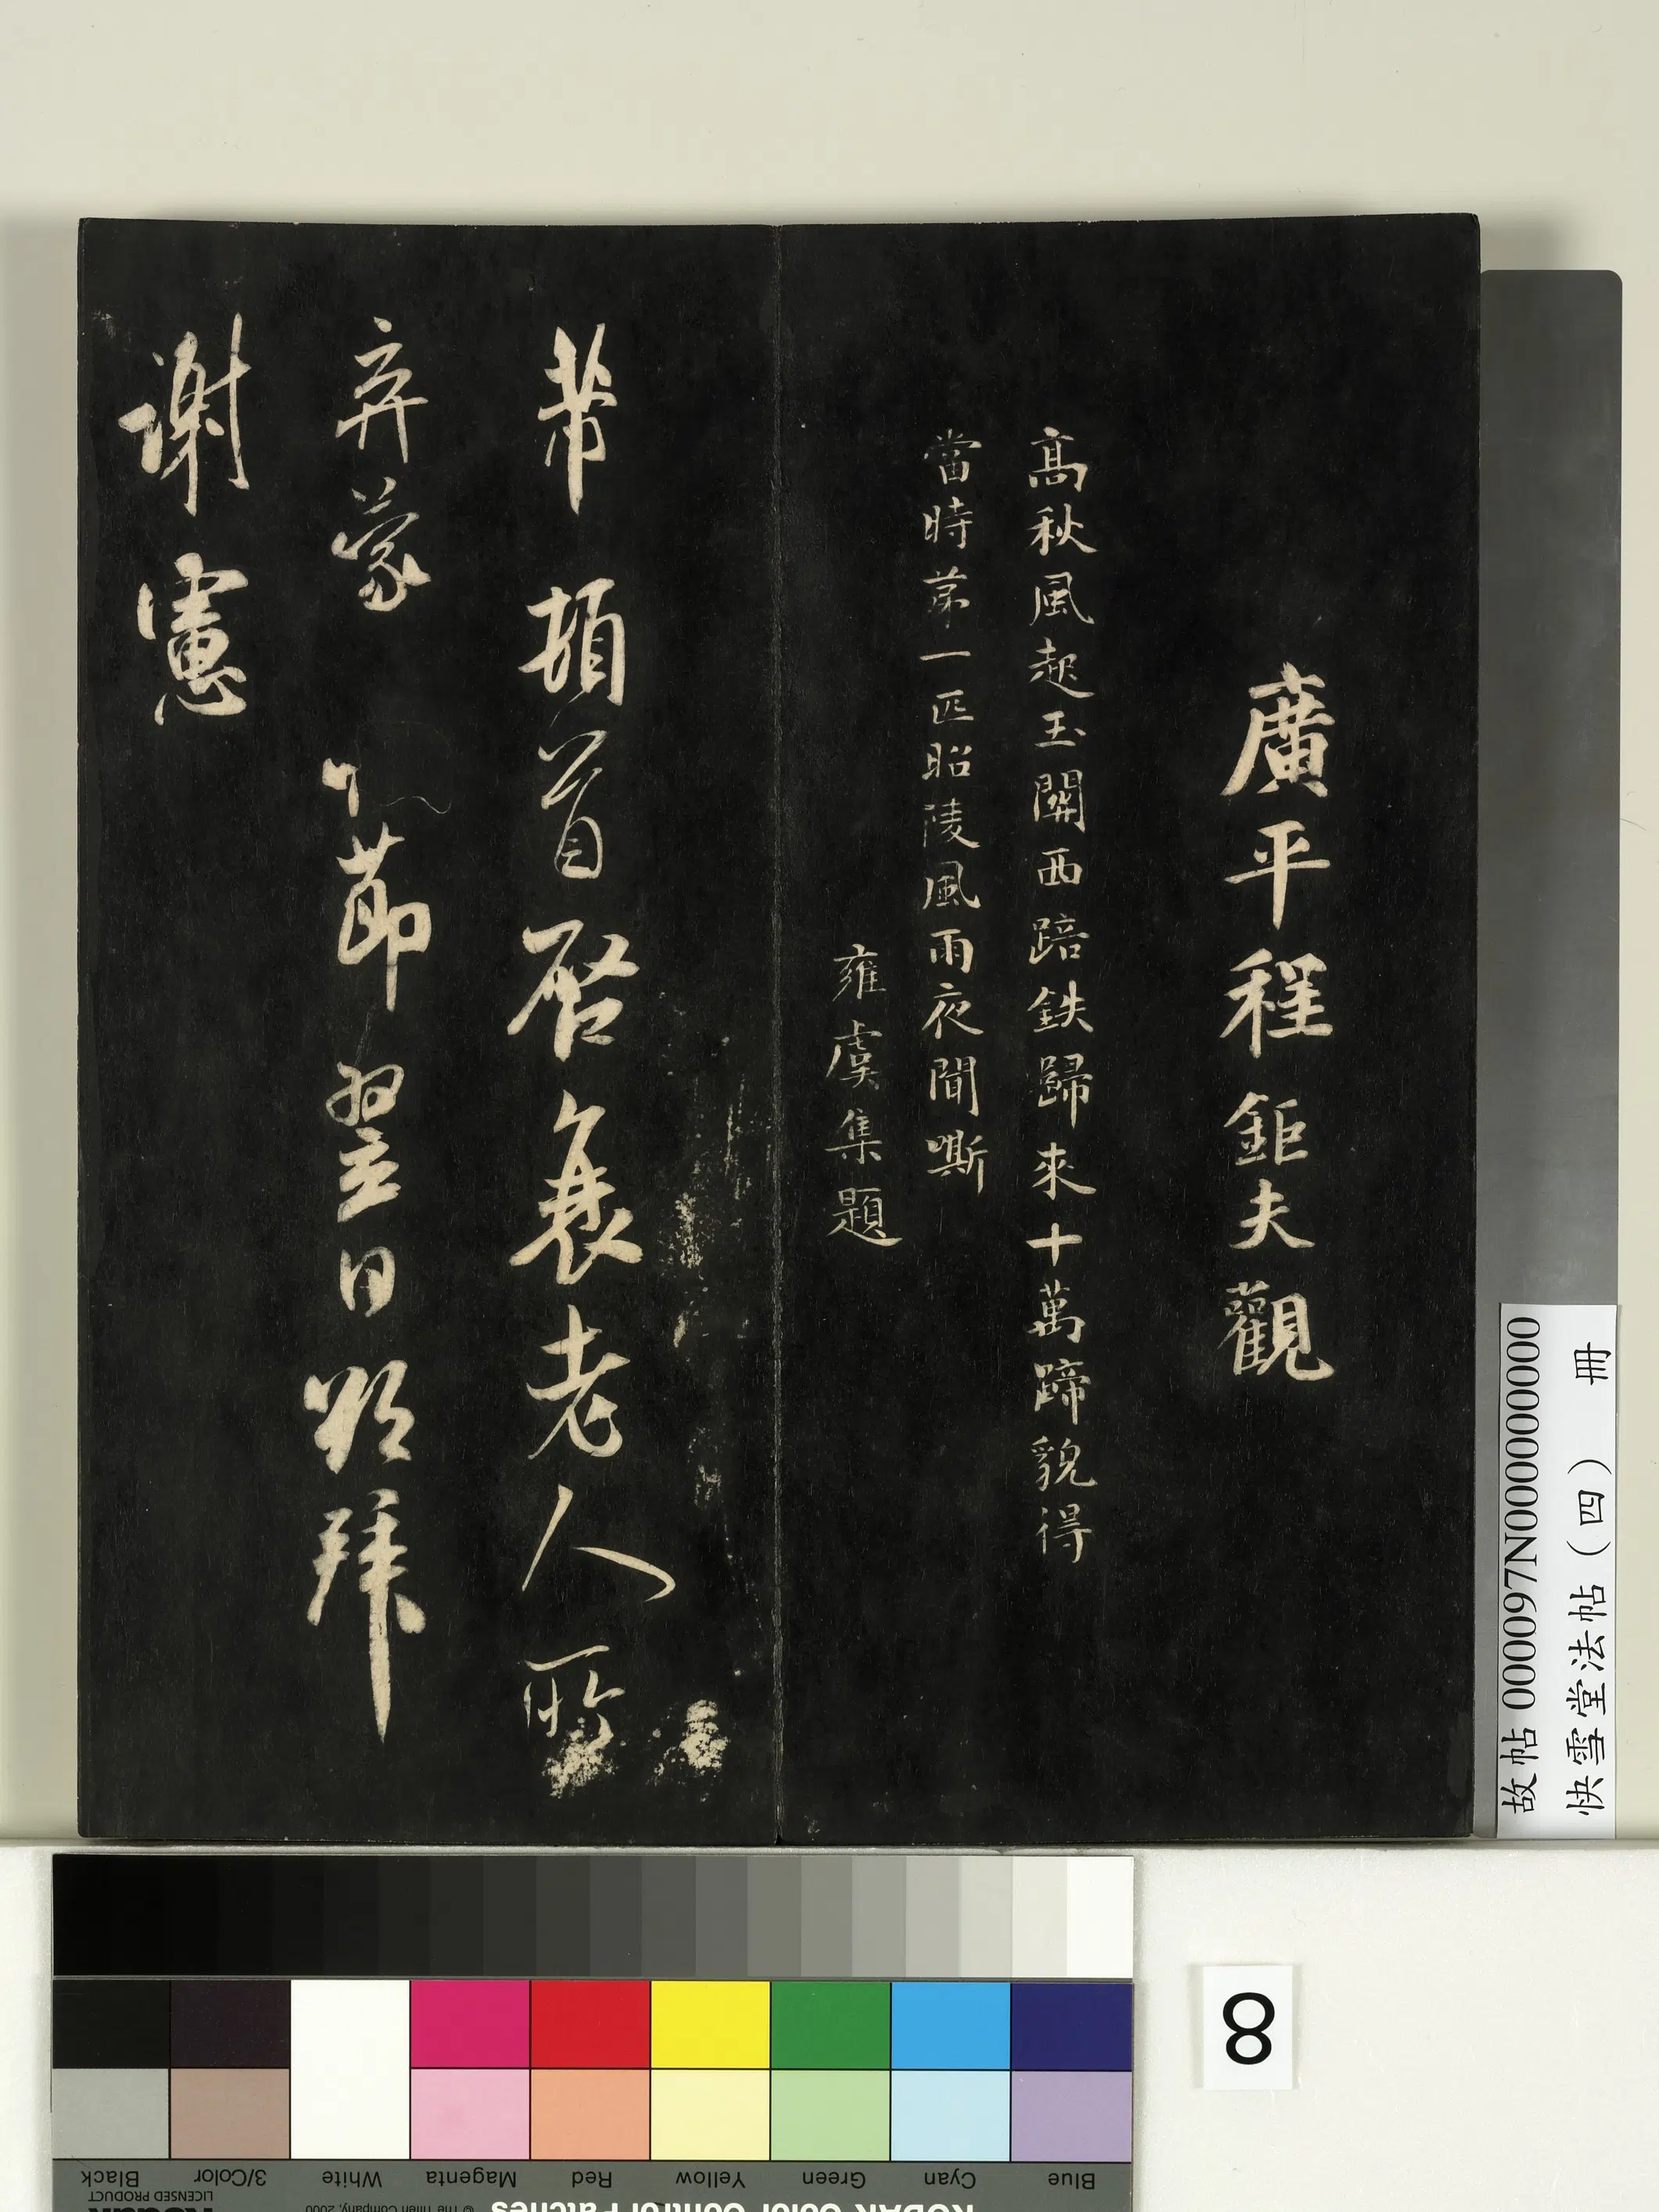 廣平程鉅夫觀
高秋風起玉關西踣鉄歸來十萬蹄貌得
當時苐一匹昭陵風雨夜聞嘶
雍虞集題
芾頓首啓衰老人所
弃蒙
節翌日郊拜
謝憲
故帖 000097N000000000
快雪堂法帖（四） 冊
8
Blue Cyan Green Yellow Red Magenta White 3/Color Black
KODAK Color Control Patches
© The Tiffen Company, 2000
LICENSED PRODUCT